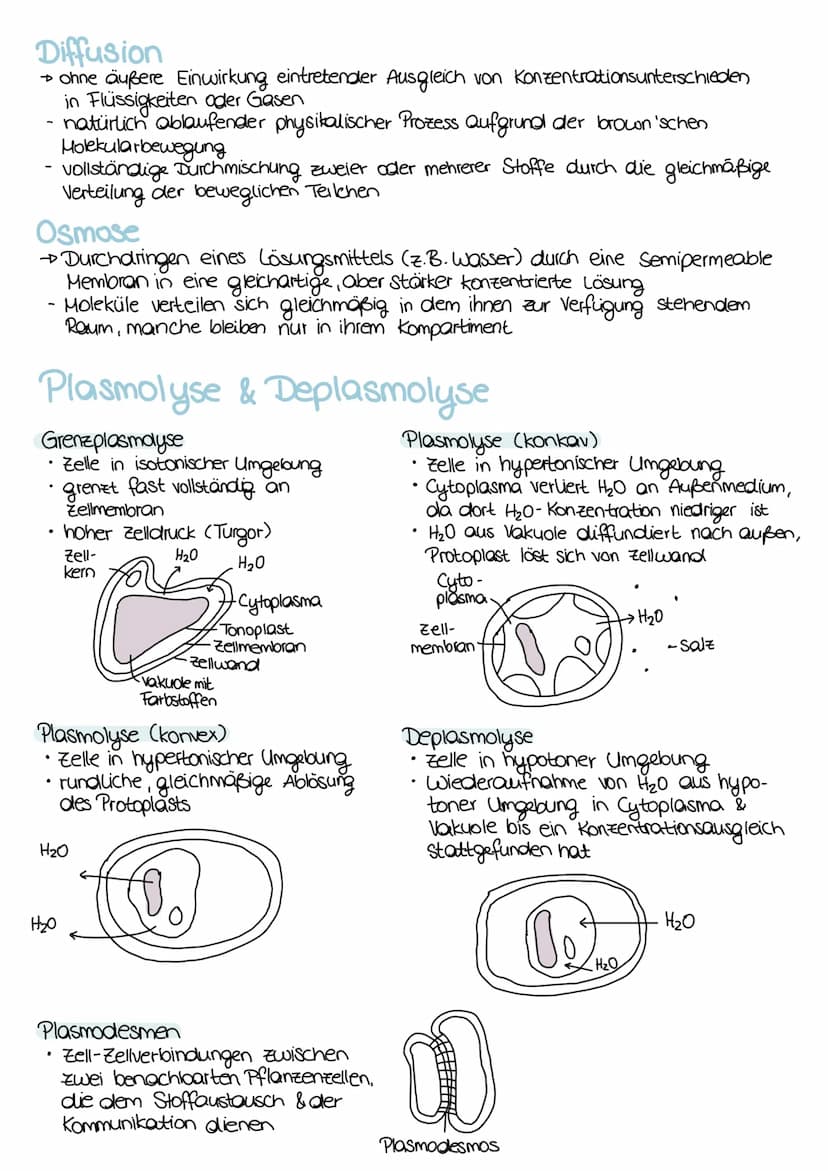 Diffusion
→ ohne äußere Einwirkung eintretender Ausgleich von Konzentrationsunterschieden
in Flüssigkeiten oder Gasen
- natürlich ablaufender physikalischer Prozess aufgrund der brown'schen
Molekularbewegung
- vollständige Durchmischung zweier oder mehrerer Stoffe durch die gleichmäßige
Verteilung der beweglichen Teilchen
Osmose
→ Durchdringen eines Lösungsmittels (z.B. Wasser) durch eine semipermeable
Membran in eine gleichartige, aber stärker konzentrierte Lösung
- Moleküle verteilen sich gleichmäßig in dem ihnen zur Verfügung stehendem
Raum, manche bleiben nur in ihrem Kompartiment
Plasmolyse & Deplasmolyse
Grenzplasmolyse
• Zelle in isotonischer Umgebung
• grenzt fast vollständig an
Zellmembran
• hoher Zelldruck (Turgor)
Zell-
kern
H₂O
H₂O
Cytoplasma
Tonoplast
Zellmembran
Zellwand
Vakuole mit
Farbstoffen
Plasmolyse (konkav)
• Zelle in hypertonischer Umgebung
• Cytoplasma verliert H₂O an Außenmedium,
da dort H₂O-Konzentration niedriger ist
• H₂O aus Vakuole diffundiert nach außen,
Protoplast löst sich von Zellwand
Cyto-
plasma
Zell-
membran
H₂O
- Salz
Plasmolyse (konvex)
• Zelle in hypertonischer Umgebung
• rundliche, gleichmäßige Ablösung
des Protoplasts
H₂O
H₂O
Deplasmolyse
• Zelle in hypotoner Umgebung
• Wiederaufnahme von H₂O aus hypo-
toner Umgebung in Cytoplasma &
Vakuole bis ein Konzentrationsausgleich
stattgefunden hat
H₂O
H₂O
Plasmodesmen
• Zell-Zellverbindungen zwischen
zwei benachbarten Pflanzenzellen,
die dem Stoffaustausch & der
Kommunikation dienen
Plasmodesmos